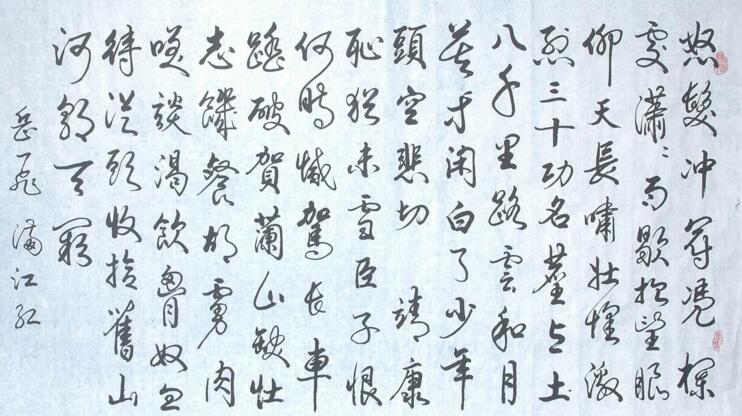 怒髮冲冠凴欄
處瀟〻雨歇抬望眼
仰天長嘯壯懷激
烈三十功名塵与土
八千里路雲和月
莫等闲白了少年
頭空悲切 靖康
恥猶未雪臣子恨
何時滅駕長車
踏破賀蘭山缺壯
志饑餐胡虜肉
笑談渴飲匈奴血
待從頭收拾舊山
河朝天闕
岳飛 滿江紅